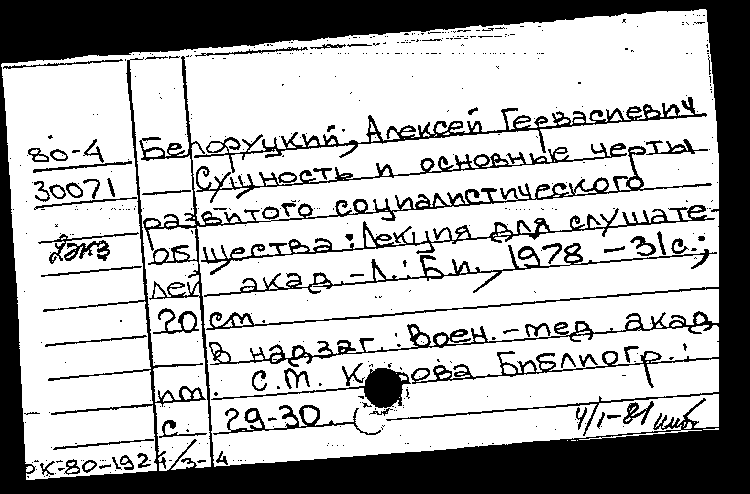 80-4 Белоруцкий, Алексей Гервасиевич
30071 Сущность и основные черты
развитого социалистического
2экз общества: Лекция для слушате-
лей акад. -Л.: Б.и., 1978. - 31с.;
20 см.
В надзаг.: Воен.-мед. акад
им. С.М. Кирова Библиогр.:
с. 29-30.
4/I-81
РК-80-1924/3-4